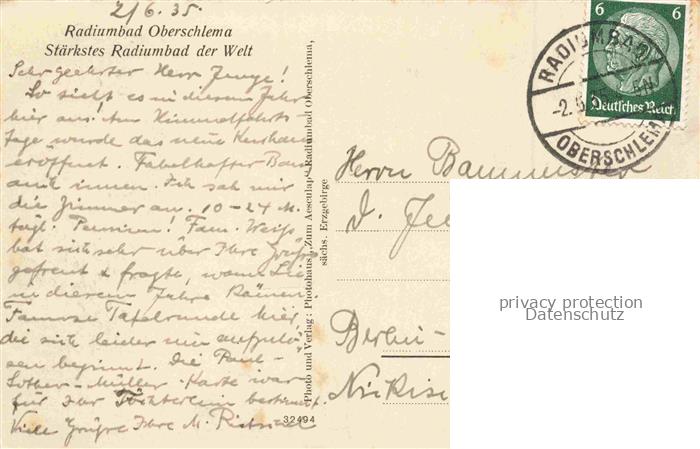 2/6. 35.
Radiumbad Oberschlema
Stärkstes Radiumbad der Welt
Sehr geehrter Herr Junge!
So sieht es in diesem Jahr
hier aus. Am Himmelfahrts
tage wurde das neue Kurhaus
eröffnet. Fabelhafter Bau
auch innen. Ich sah mir
die Zimmer an. 10-24 M.
tägl. Pension! Fam. Weiß
hat sich sehr über Ihre Grüße
gefreut & fragte, wann Sie
in diesem Jahre kämen.
Famose Tafelrunde hier,
die sich leider nun aufzulö-
sen beginnt. Die Paul-
Lother-Müller-Karte war
für Ihr Töchterlein bestimmt.
Viele Grüße Ihre M.
Photo und Verlag: Photohaus „Zum Aesculap“ Radiumbad Oberschlema,
sächs. Erzgebirge
32494
6 6
Deutsches Reich
RADIUMBAD
-2.6.35
OBERSCHLEMA
Herrn Baumeister
Berlin-
privacy protection
Datenschutz